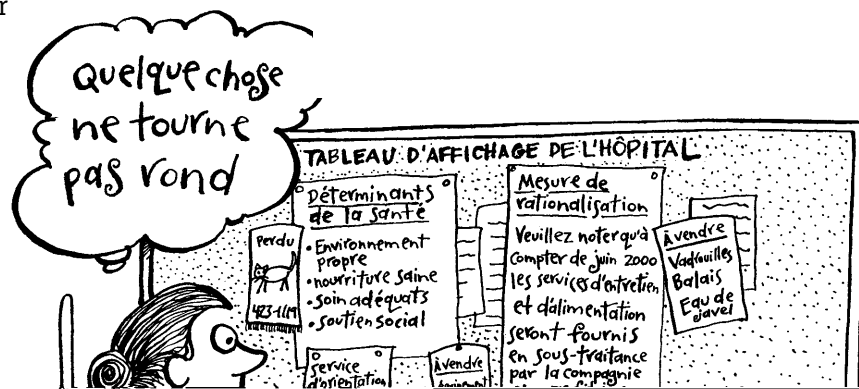 r
Quelque chose
ne tourne
pas rond
TABLEAU D'AFFICHAGE DE L'HÔPITAL
Déterminants
de la santé
• Environnement
propre
• nourriture saine
• soin adéquats
• soutien social
Perdu
423-1119
service
d'orientation
Mesure de
rationalisation
Veuillez noter qu'à
compter de juin 2000
les services d'entretien
et d'alimentation
seront fournis
en sous-traitance
par la compagnie
À vendre
Vadrouilles
Balais
Eau de
javel
À vendre